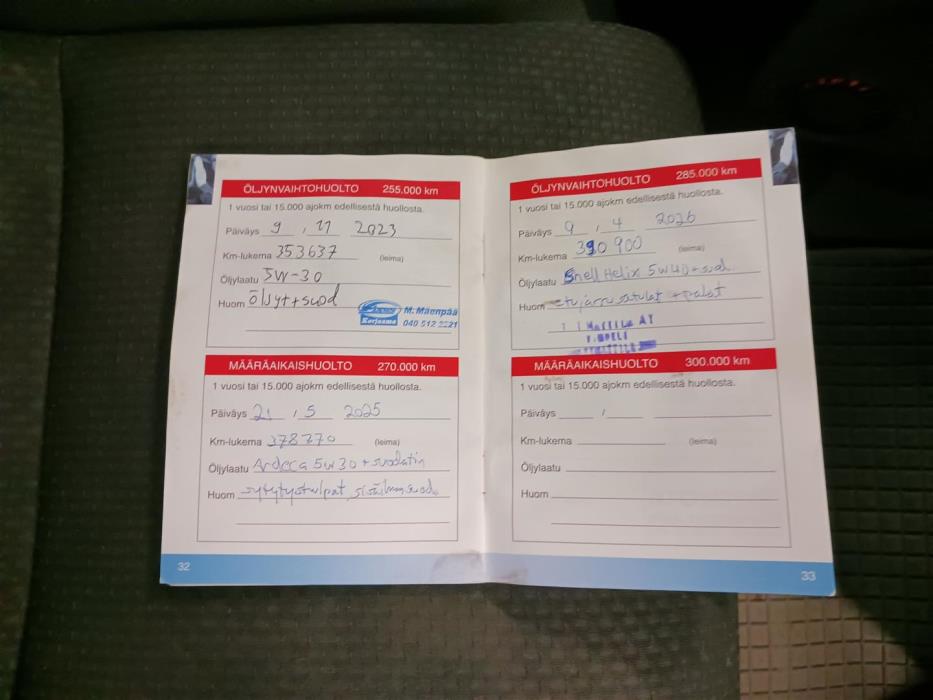 ÖLJYNVAIHTOHUOLTO 255.000 km
1 vuosi tai 15.000 ajokm edellisestä huollosta.
Päiväys 9 , 11 2023
Km-lukema 353637 (leima)
Öljylaatu 5W-30
Huom öljyt+suod
Korjaamo
M. Mäenpää
040 512 2221
MÄÄRÄAIKAISHUOLTO 270.000 km
1 vuosi tai 15.000 ajokm edellisestä huollosta.
Päiväys 21 , 5 2025
Km-lukema 378770 (leima)
Öljylaatu Ardeca 5w30+suodatin
Huom sytytystulpat, sisäilmansuod.
32
ÖLJYNVAIHTOHUOLTO 285.000 km
1 vuosi tai 15.000 ajokm edellisestä huollosta.
Päiväys 9 , 4 2026
Km-lukema 390 900 (leima)
Öljylaatu Shell Helix 5W40+suod.
Huom etujarrusatulat + palat
MATTILA AY
VIMPELI
MÄÄRÄAIKAISHUOLTO 300.000 km
1 vuosi tai 15.000 ajokm edellisestä huollosta.
Päiväys /
Km-lukema (leima)
Öljylaatu
Huom
33